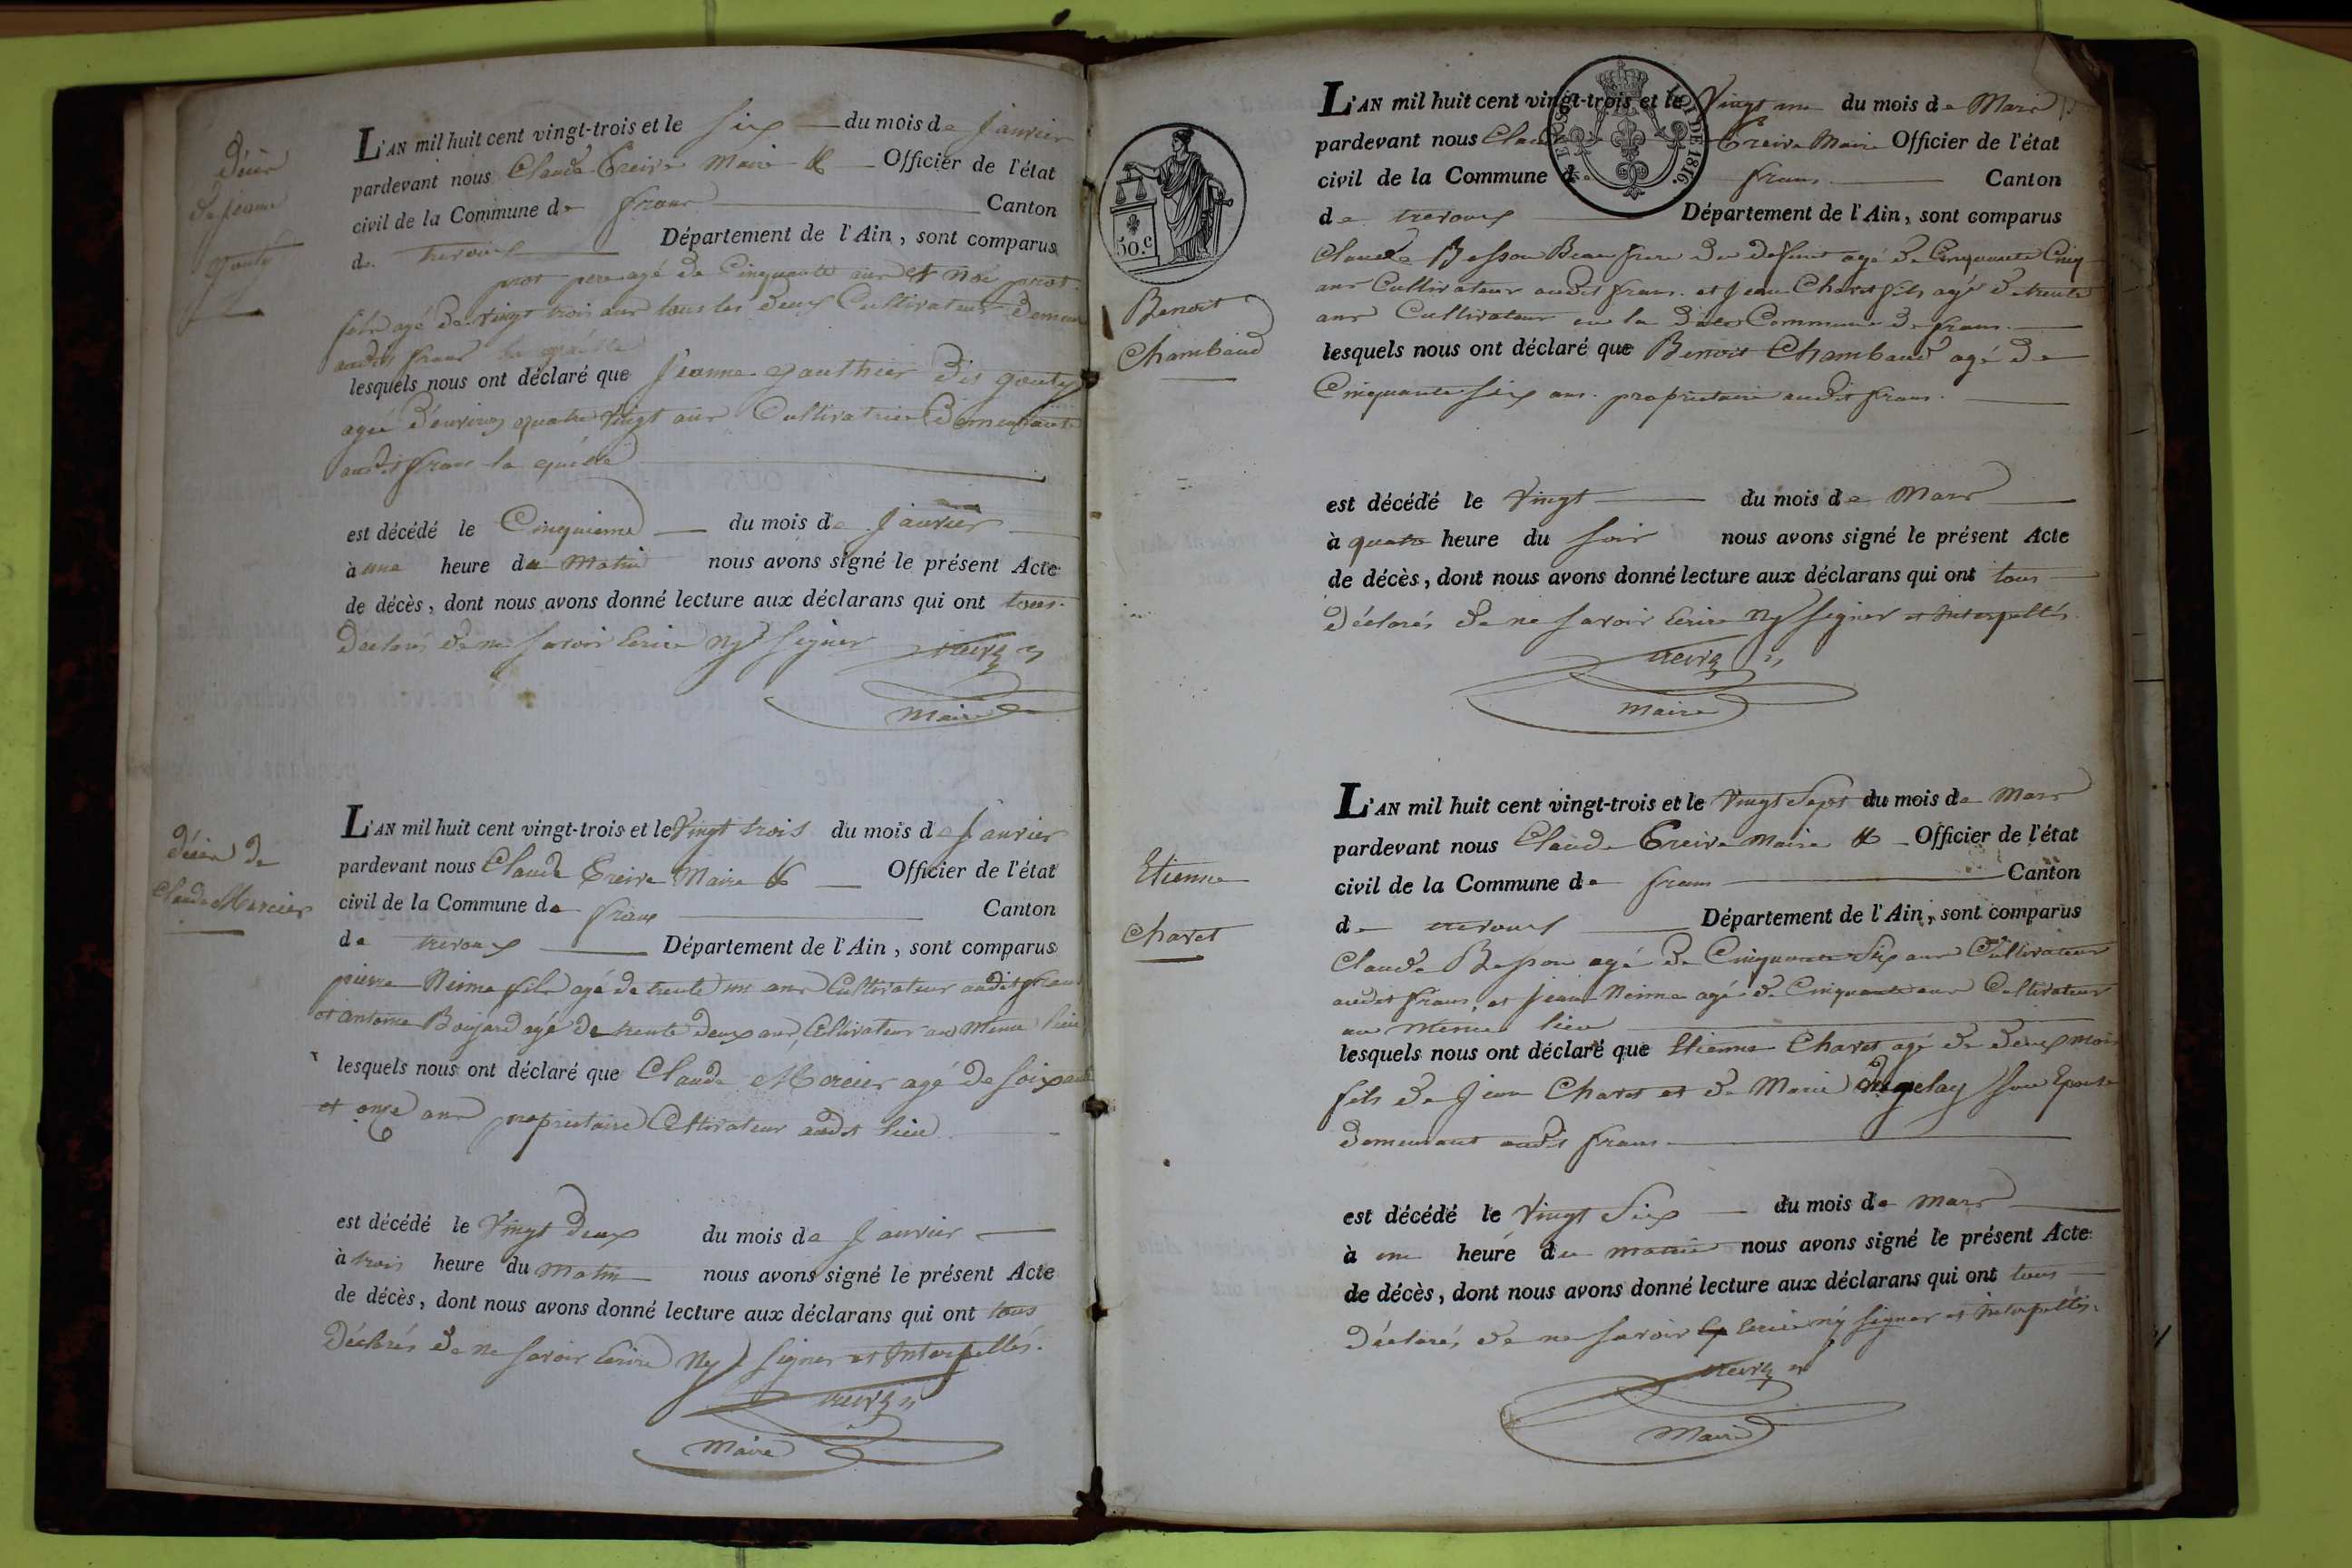 décès
de jeanne
gouty
L'AN mil huit cent vingt-trois et le six du mois de Janvier
pardevant nous Claude Treive Maire & Officier de l'état
civil de la Commune de frans Canton
de trevoux Département de l'Ain, sont comparus
prost pere agé de Cinquante ans et Noé prost
fils agé de vingt trois ans tous les deux Cultivateurs
audit frans
lesquels nous ont déclaré que Jeanne gauthier dit gouty
agée d'environ quatre vingt ans Cultivatrice Demeurante
audit frans la quelle
est décédé le Cinquieme du mois de Janvier
à une heure du Matin nous avons signé le présent Acte
de décès, dont nous avons donné lecture aux déclarans qui ont tous
Declarés de ne savoir Ecrire Ny Signer treive
Maire
décès de
Claude Mercier
L'AN mil huit cent vingt-trois et le Vingt trois du mois de Janvier
pardevant nous Claude Treive Maire & Officier de l'état
civil de la Commune de frans Canton
de trevoux Département de l'Ain, sont comparus
pierre Neime fils agé de trente un ans Cultivateur audit frans
et antoine Boujard agé de trente deux ans Cultivateur au Même lieu
lesquels nous ont déclaré que Claude Mercier agé de soixante
et onze ans proprietaire Cultivateur audit lieu
est décédé le Vingt deux du mois de Janvier
à trois heure du Matin nous avons signé le présent Acte
de décès, dont nous avons donné lecture aux déclarans qui ont tous
Déclarés de ne savoir Ecrire Ny Signer et Interpellés.
treive
Maire
LOI DE 1816.
50.c
Benoit
Chambaud
L'AN mil huit cent vingt-trois et le Vingt un du mois de Mars
pardevant nous Claude Treive Maire Officier de l'état
civil de la Commune de frans Canton
de trevoux Département de l'Ain, sont comparus
Claude Besson Beau frere du défunt agé de Cinquante Cinq
ans Cultivateur audit frans. et Jean Charet fils agé de trente
ans Cultivateur en la dite Commune de frans.
lesquels nous ont déclaré que Benoit Chambaud agé de
Cinquante six ans. proprietaire audit frans.
est décédé le Vingt du mois de Mars
à quatre heure du soir nous avons signé le présent Acte
de décès, dont nous avons donné lecture aux déclarans qui ont tous
Déclarés de ne savoir Ecrire Ny signer et Interpellés.
treive
Maire
Etienne
Charet
L'AN mil huit cent vingt-trois et le Vingt Sept du mois de Mars
pardevant nous Claude Treive Maire & Officier de l'état
civil de la Commune de frans Canton
de trevoux Département de l'Ain, sont comparus
Claude Besson agé de Cinquante Six ans Cultivateur
audit frans, et Jean Neime agé de Cinquante ans Cultivateur
au Même lieu
lesquels nous ont déclaré que Etienne Charet agé de deux mois
fils de Jean Charet et de Marie son Epouse
demeurant audit frans
est décédé le Vingt Six du mois de mars
à une heure du matin nous avons signé le présent Acte
de décès, dont nous avons donné lecture aux déclarans qui ont tous
Déclarés de ne savoir Ecrire ny signer et Interpellés.
treive
Maire